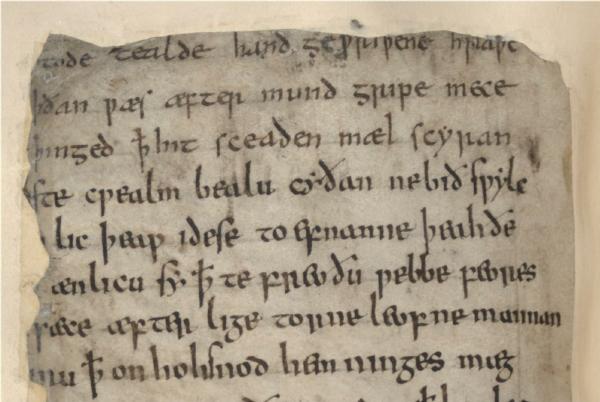 tode tealde hand geƿriþene hraþe
ðan ƿæs æfter mund gripe mece
þinged ꝥ hit sceaden mæl scyran
ste cƿealm bealu cyðan ne bið sƿylc
lic þeaƿ idese to efnanne þeah ðe
ænlicu sy ꝥ te freoðu ƿebbe feores
sæce æfter lige torne leofne mannan
ru ꝥ on hohsnod hem ninges mæg